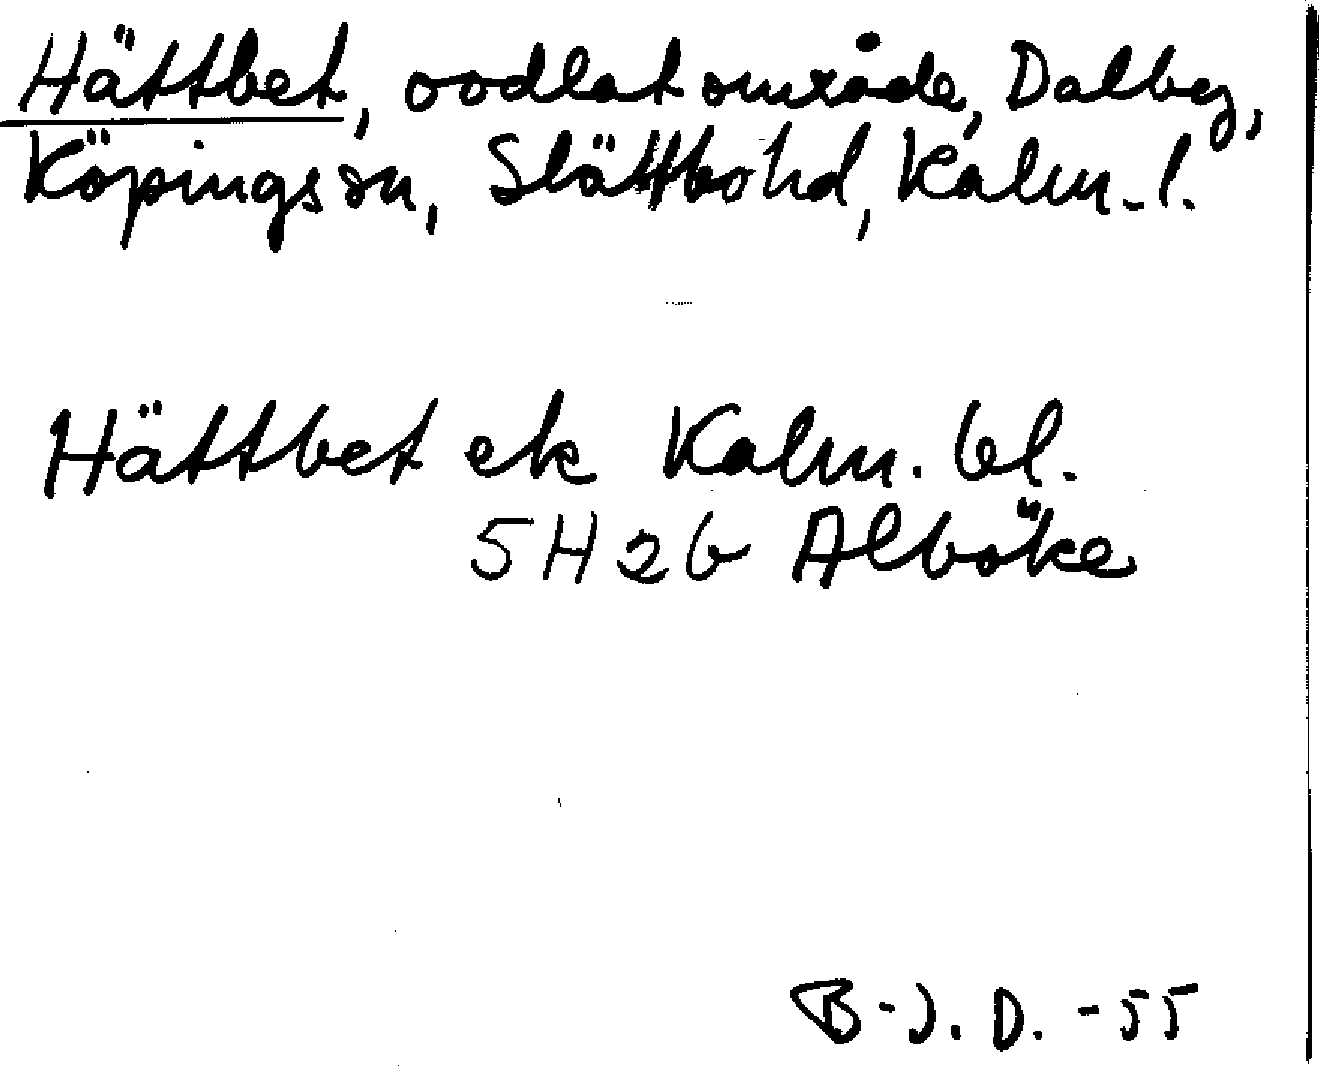 Hättbet, oodlat område, Dalby,
Köpings sn, Slättbo hd, Kalm. l.
Hättbet ek Kalm. bl.
5H2b Alböke
B-J. D. -55